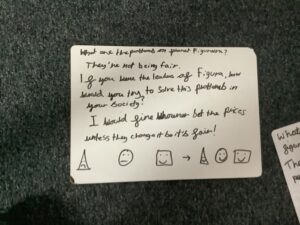 What are the problems on planet Figuroon?
They're not being fair.
If you were the leader of Figura, how
would you try to solve this problems in
your society?
I would fine whowner bet the prices
unless they change it so it's fair!
What
The